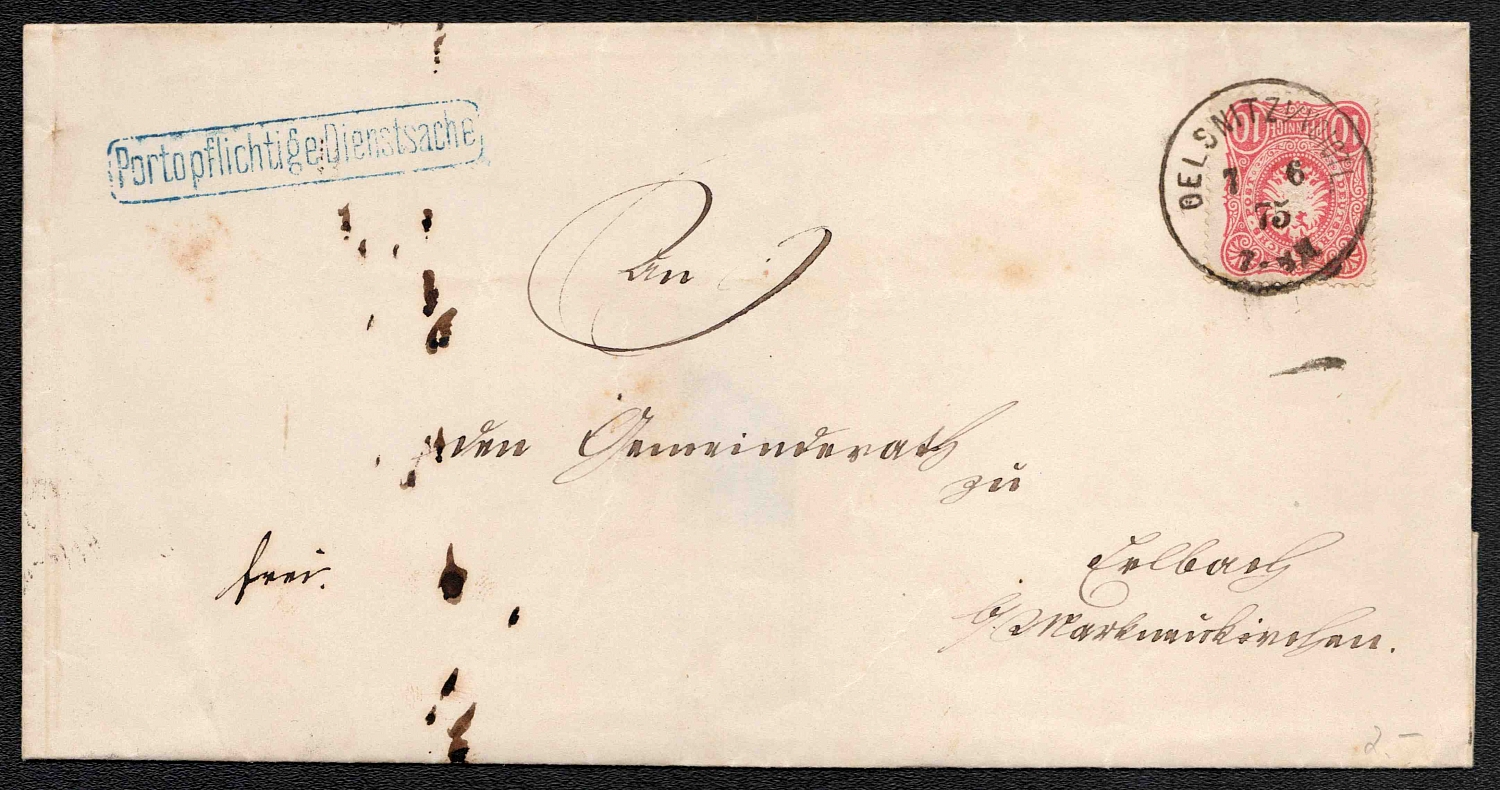 Portopflichtige Dienstsache
OELSNITZ
7 6
75
7-8
10 PFENNIGE 10
An
den Gemeinderath
zu
frei.
Erlbach
b/Markneukirchen.
2.-